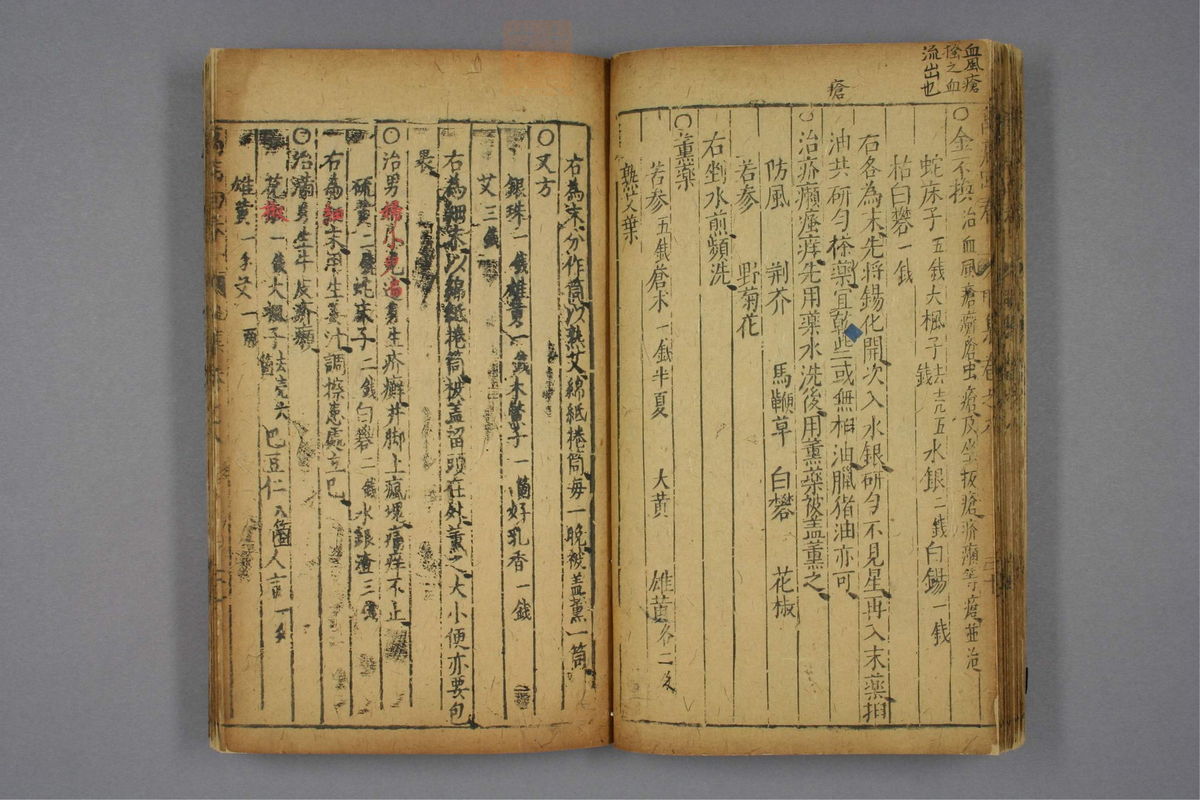 血風瘡
搽之血
流出也
瘡
○金不換 治血風瘡癬瘡虫瘡及坐板瘡疥癩等瘡並治
蛇床子 五錢 大楓子 去壳五錢 水銀 二錢 白錫 一錢
枯白礬 一錢
右各為末先將錫化開次入水銀研勻不見星再入末藥
油共研勻搽藥宜乾些或無柏油臘猪油亦可
○治疥癩瘙痒先用藥水洗後用薰藥被盖薰之
防風 荆芥 馬鞭草 白礬 花椒
苦參 野菊花
右剉水煎頻洗
○薰藥
苦參 五錢 蒼术 一錢 半夏 大黃 雄黃 各二錢
熟艾葉
右為末分作筒以熟艾綿紙捲筒每一晚被盖薰一筒
○又方
銀珠 一錢 雄黃 一錢 木鱉子 一箇 好乳香 一錢
艾 三錢
右為細末以綿紙捲筒被盖留頭在外薰之大小便亦要包
褁
○治男婦小兒遍身生疥癬并脚上瘋塊痛痒不止
硫黃 二錢 蛇床子 二錢 白礬 二錢 水銀渣 三錢
右為細末用生姜汁調搽患處立巴
○治滿身生牛皮癬癩
花椒 一錢 大楓子 去壳六箇 巴豆仁 八箇 人言 一分
雄黃 一分 艾 一兩